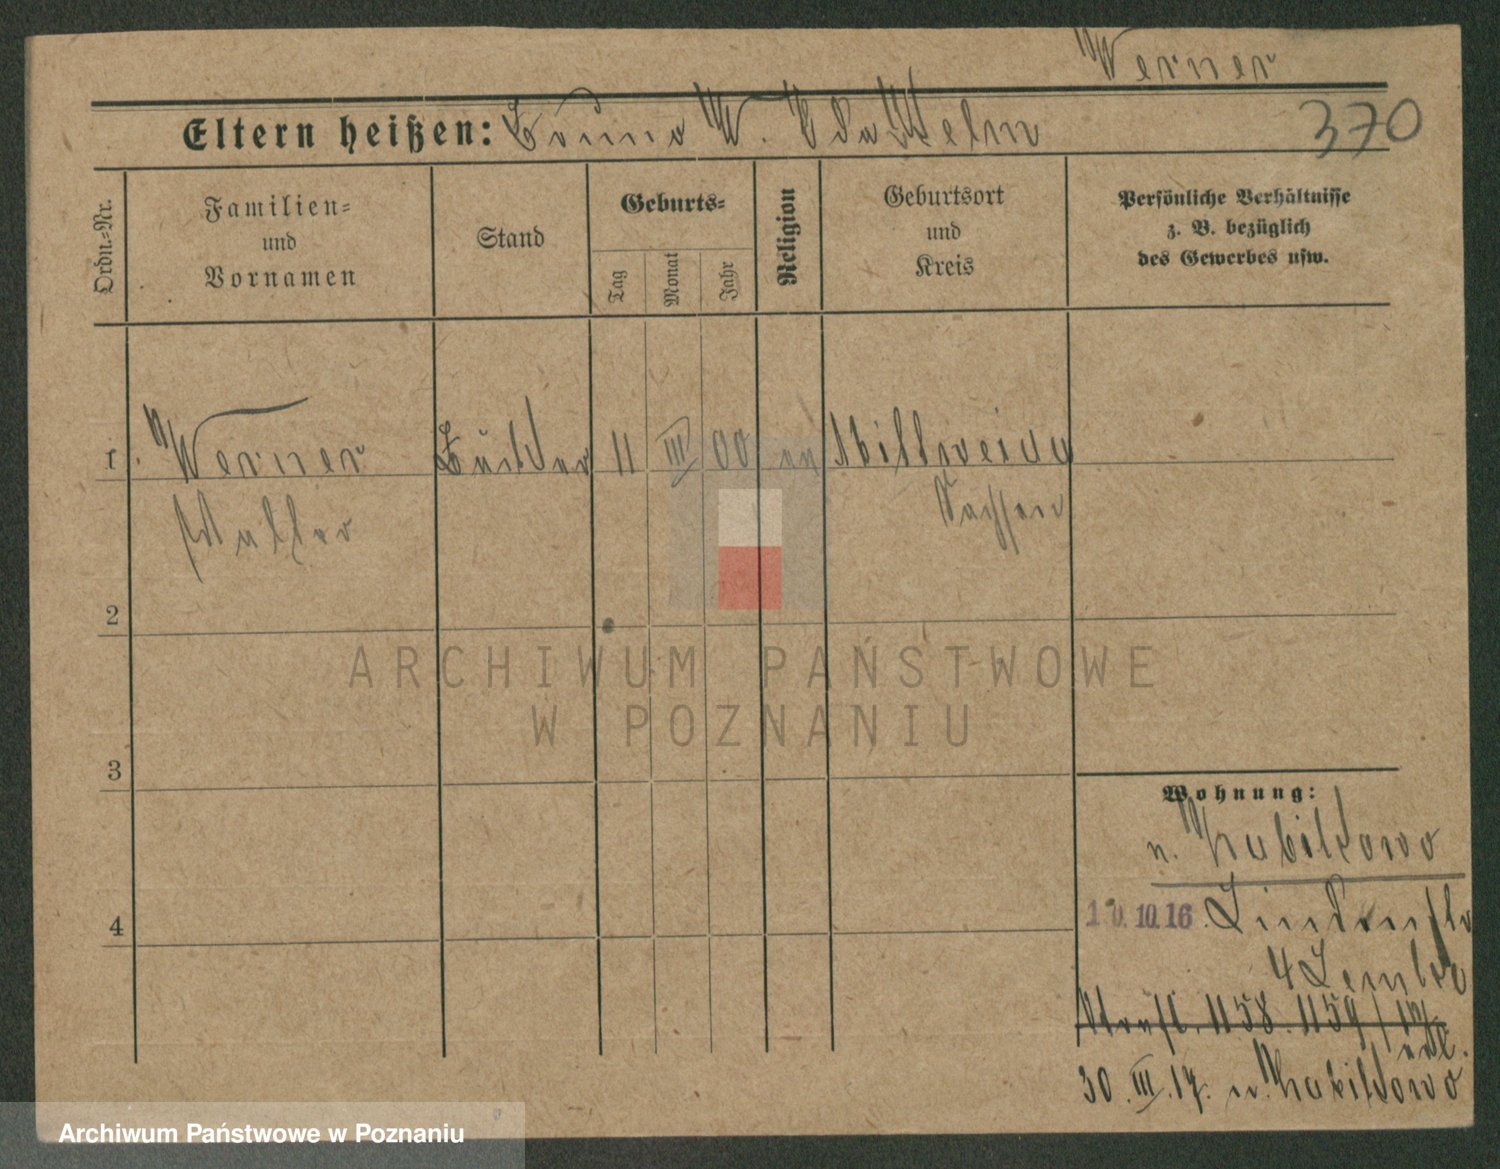 Werner
370
Eltern heißen: Bruno W.
Ordn.-Nr.
Familien-
und
Vornamen
Stand
Geburts-
Tag
Monat
Jahr
Religion
Geburtsort
und
Kreis
Persönliche Verhältnisse
z. B. bezüglich
des Gewerbes usw.
1 Werner 11 III 00 ev Mittweida
Walter Sachsen
2
3
4
ARCHIWUM PAŃSTWOWE
W POZNANIU
Wohnung:
n. Kubildowo
10.10.16. Lindenstr
4
1158. 1159
30. III. 17. n. Kubildowo
Archiwum Państwowe w Poznaniu